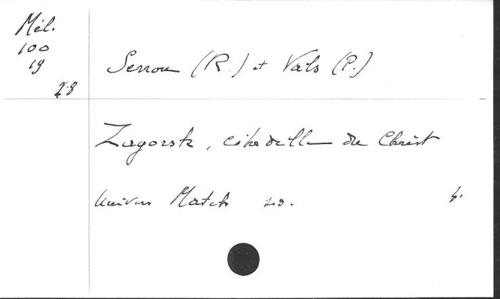 Mél.
100
19
Serrou (R.) et Vals (P.)
Zagorsk, citadelle du Christ
Univers Match s.d. 4.